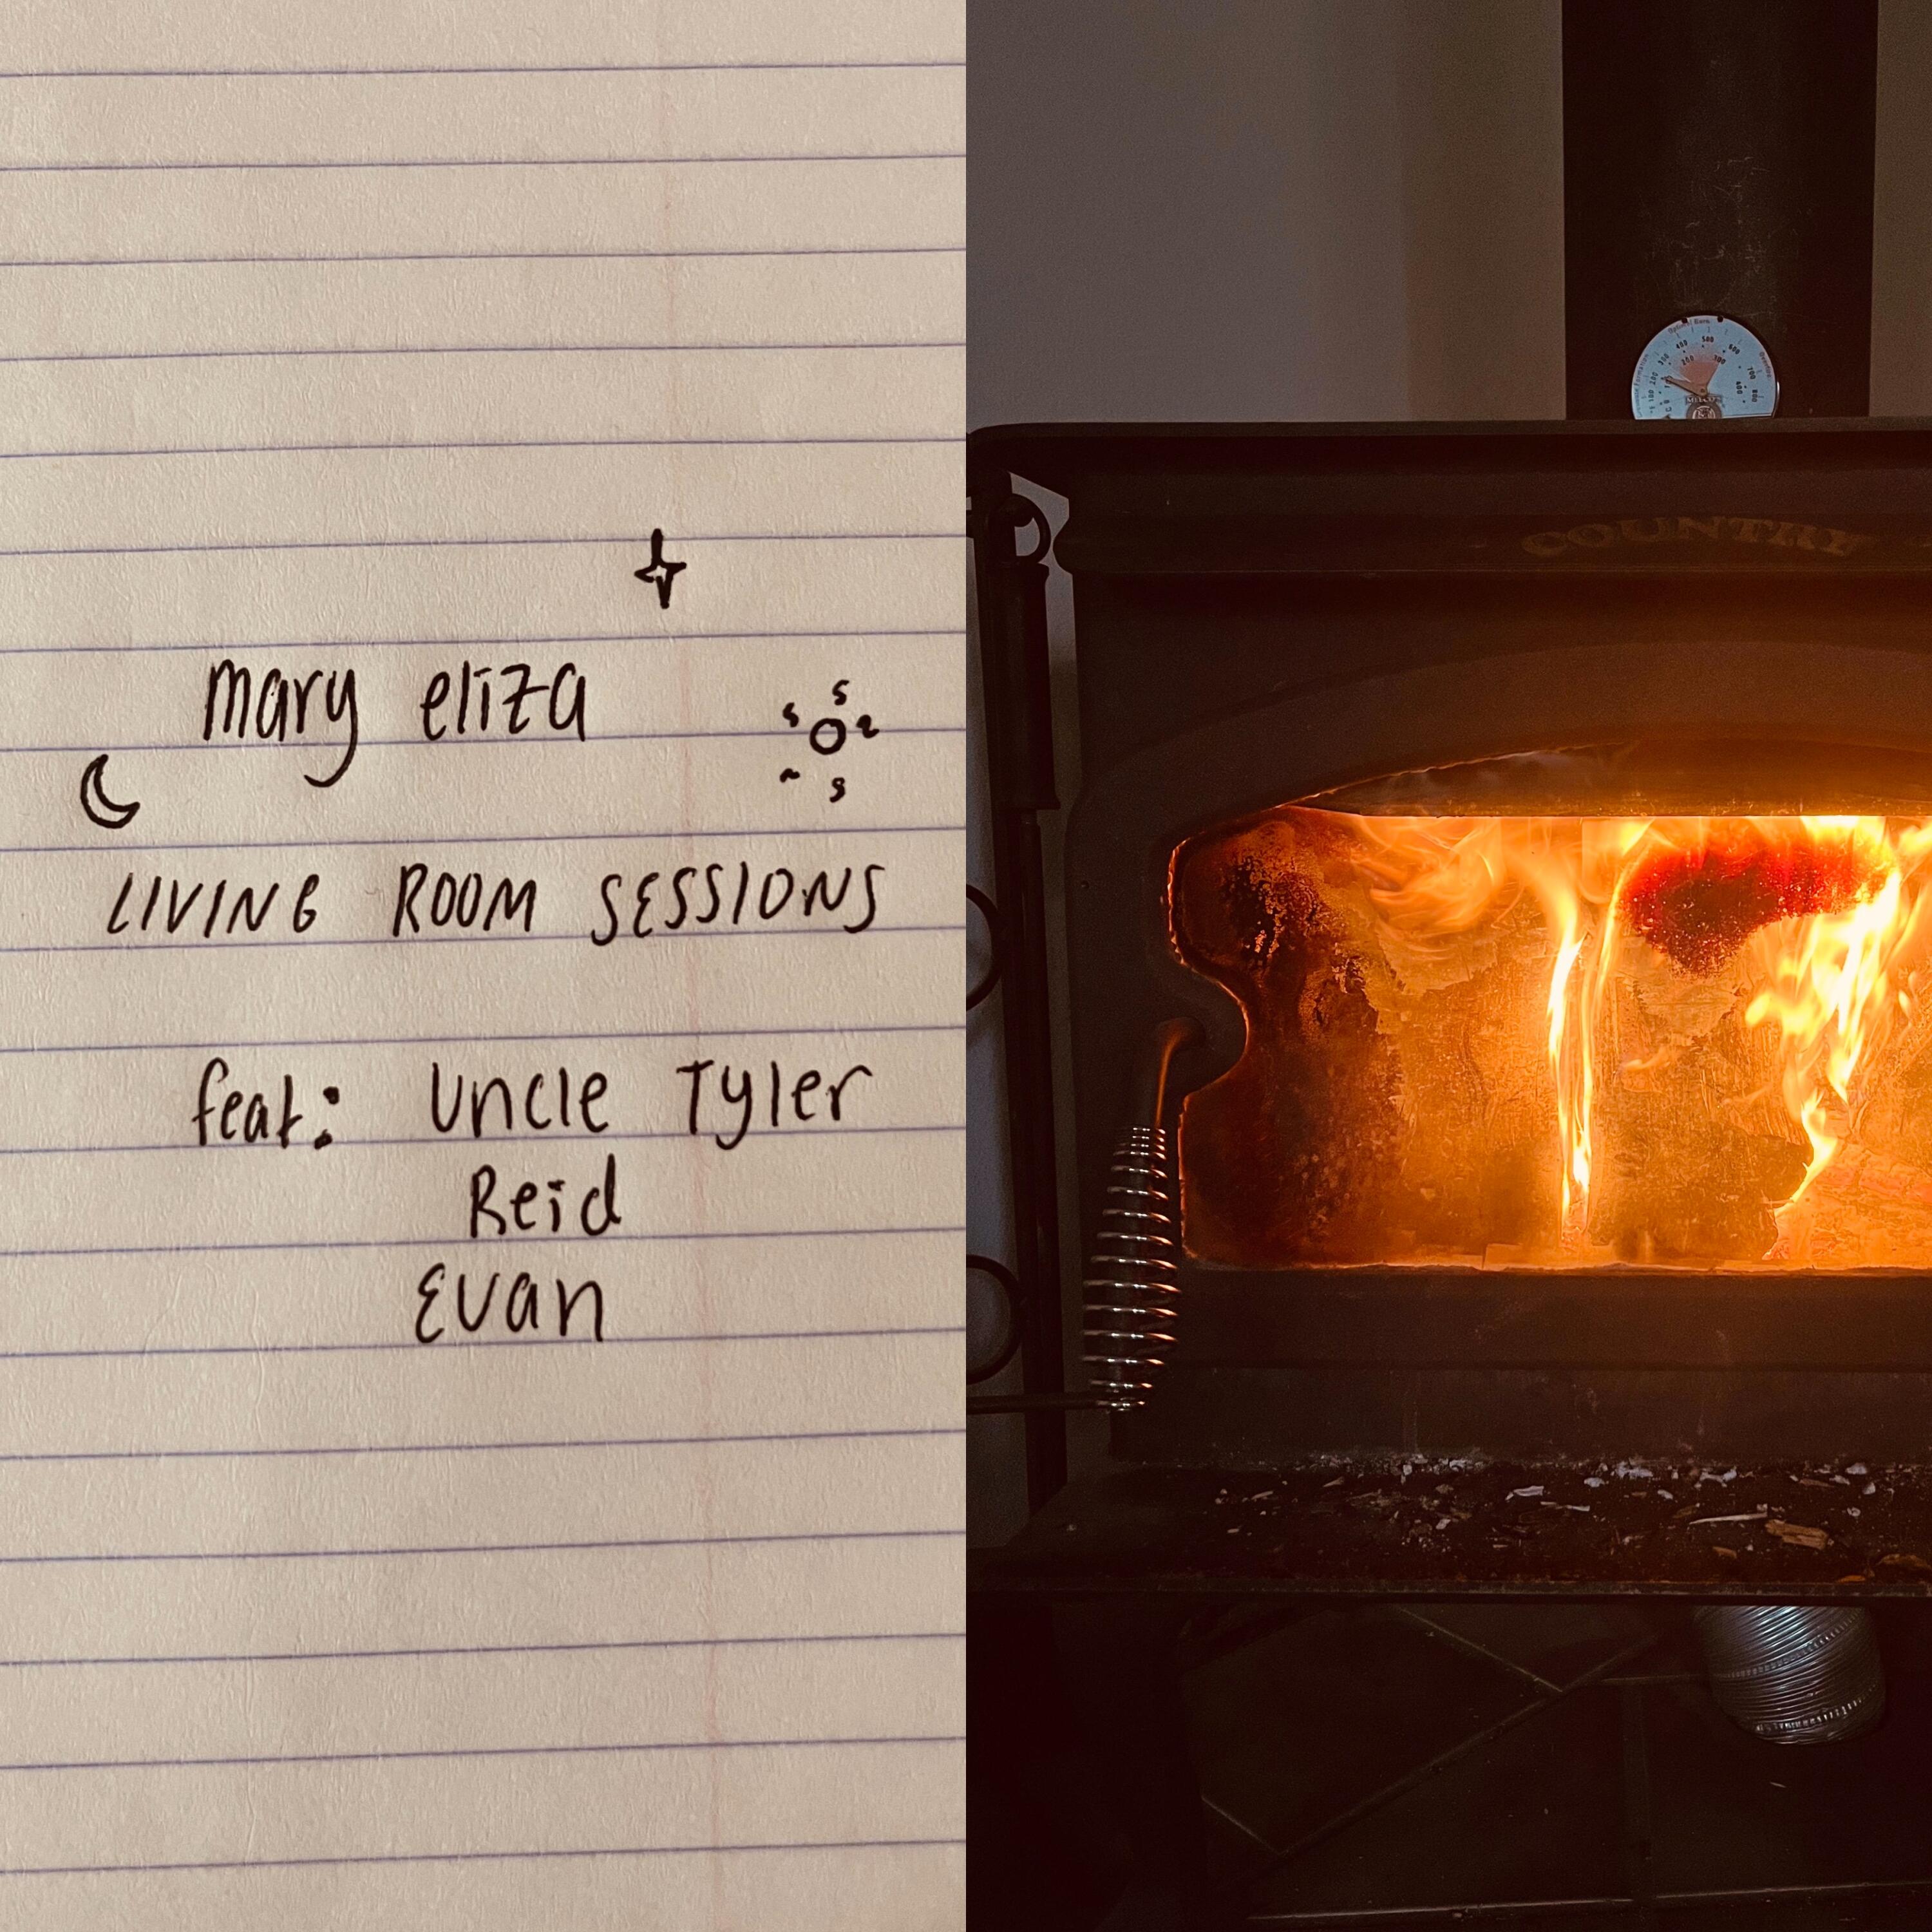 mary eliza
LIVING ROOM SESSIONS
feat: Uncle Tyler
Reid
Evan
COUNTRY